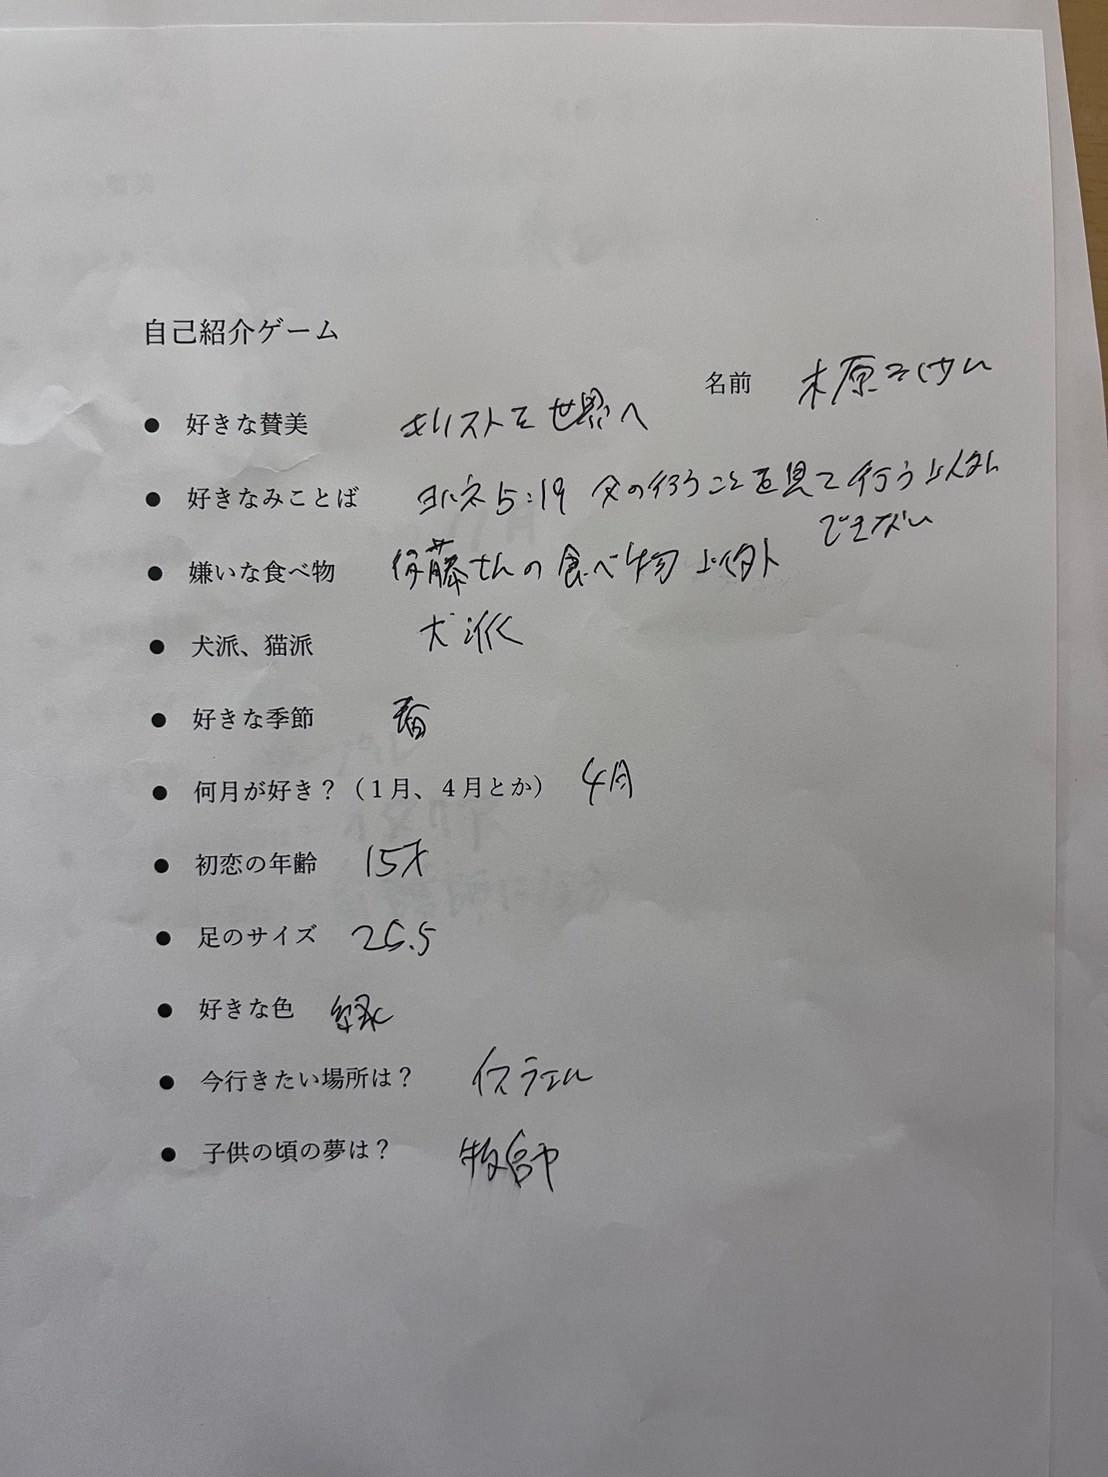 自己紹介ゲーム
名前 木原
● 好きな賛美 キリストを世界へ
● 好きなみことば ヨハネ5:19 父の行うことを見て行う以外
できない
● 嫌いな食べ物 伊藤さんの食べ物以外
● 犬派、猫派 犬派
● 好きな季節 春
● 何月が好き？（１月、４月とか） 4月
● 初恋の年齢 15才
● 足のサイズ 26.5
● 好きな色 緑
● 今行きたい場所は？ イスラエル
● 子供の頃の夢は？ 牧師